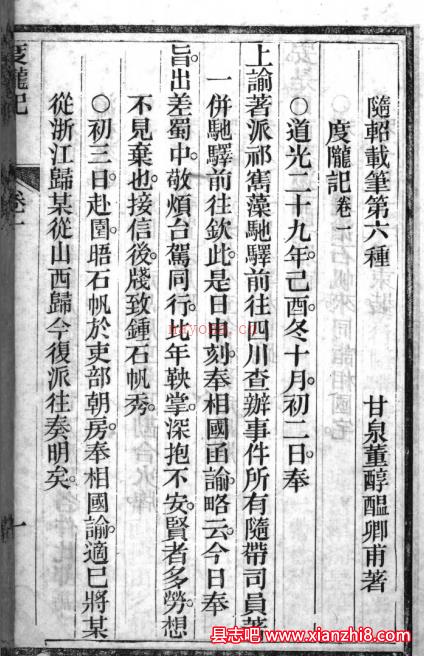 隨軺載筆第六種
甘泉董醇醞卿甫著
度隴記卷一
○道光二十九年己酉冬十月初二日奉
上諭著派祁寯藻馳驛前往四川查辦事件所有隨帶司員著
一併馳驛前往欽此是日申刻奉相國函諭略云今日奉
旨出差蜀中敬煩台駕同行比年鞅掌深抱不安賢者多勞想
不見棄也接信後牋致鍾石帆秀
○初三日赴園晤石帆於吏部朝房奉相國諭適已將某
從浙江歸某從山西歸今復派往奏明矣
度隴記
卷一
一
nayona.cn
县志吧
www.xianzhi8.com